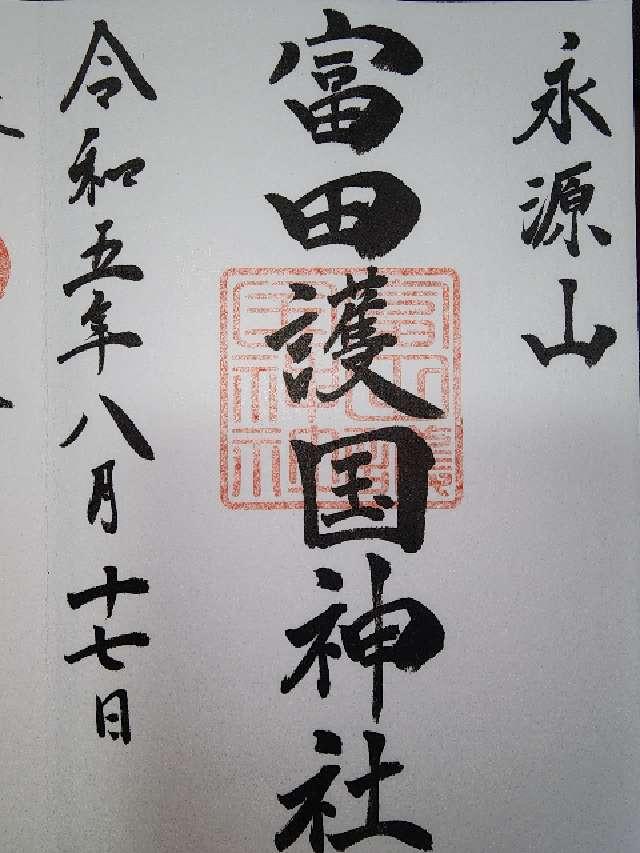 永源山
富田護国神社
令和五年八月十七日